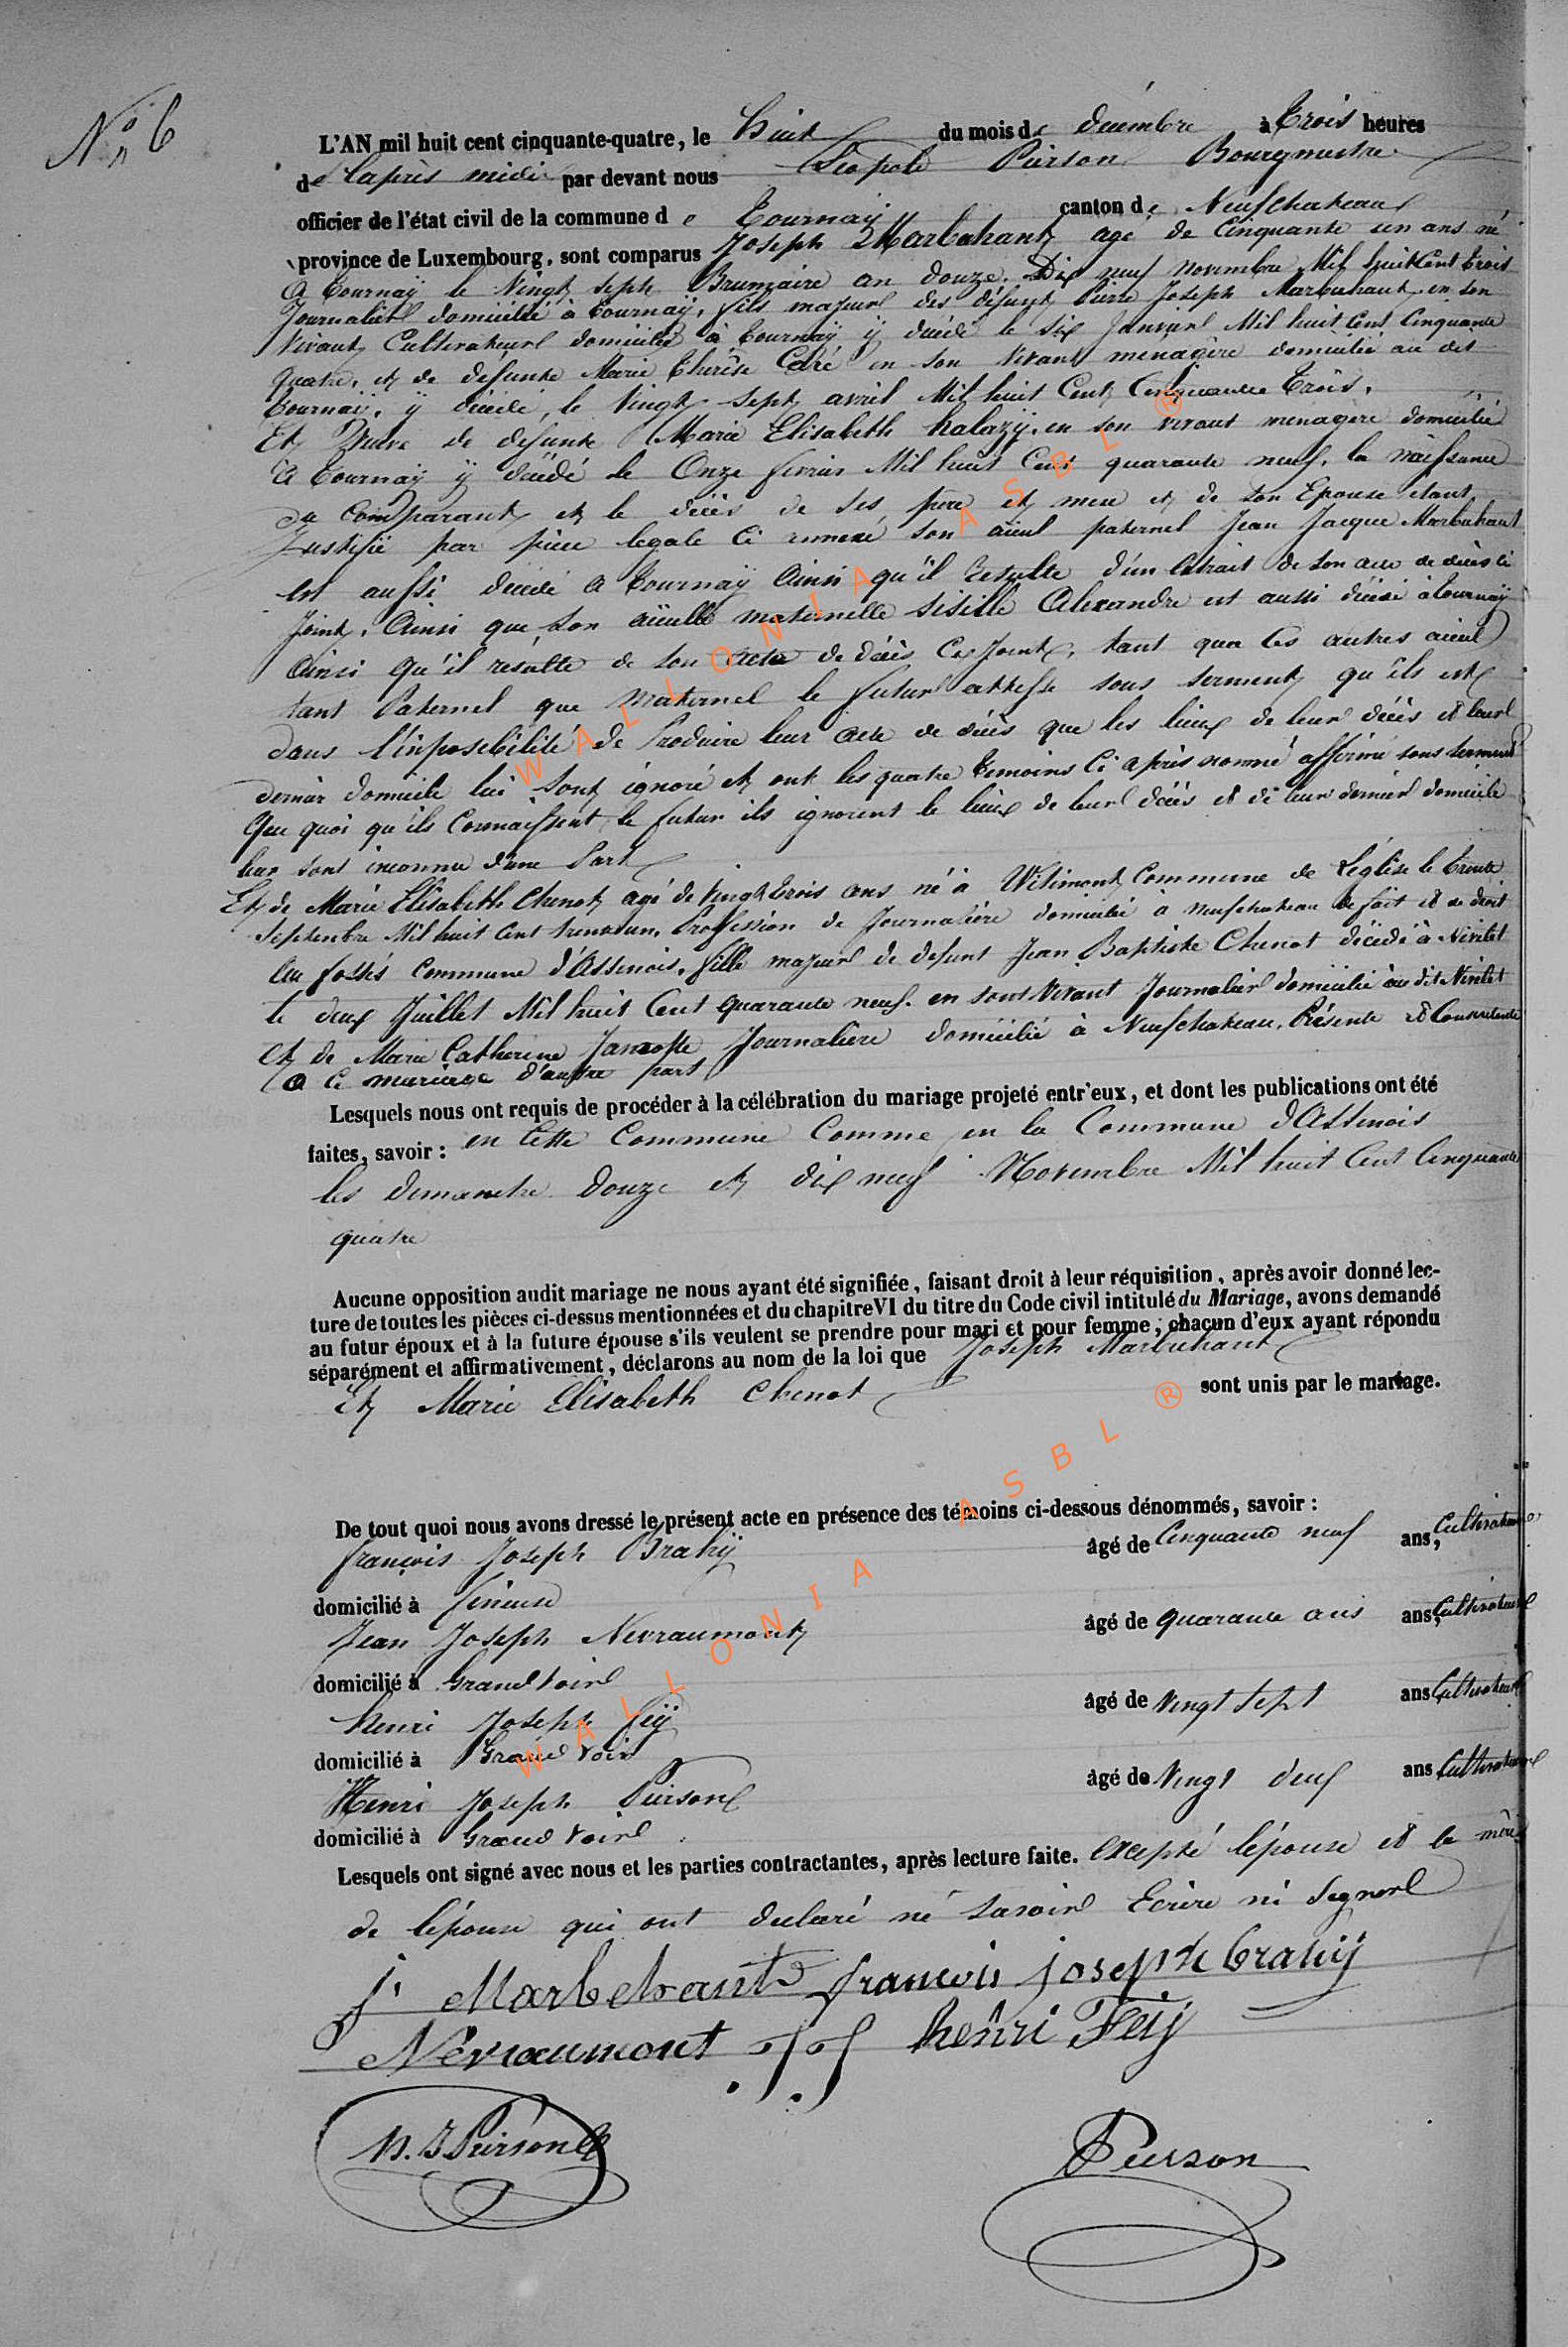 N° 6
L'AN mil huit cent cinquante-quatre, le huit du mois de décembre à trois heures
de laprès midi par devant nous Léopold Pierson Bourgmestre
officier de l'état civil de la commune de Tournaÿ canton de Neufchateau
province de Luxembourg, sont comparus Joseph Marbehant agé de Cinquante un ans né
a Tournaÿ le Vingt sept Brumaire an douze. Dix neuf novembre Mil huit Cent trois
Journalier domicilié à Tournaÿ, fils majeur des défunt Pierre Joseph Marbehant en son
vivant Cultivateur domicilié à Tournaÿ ÿ décédé le six Janvier Mil huit Cent Cinquante
quatre, et de defunte Marie Thérèse en son vivant menagère domicilié au dit
Tournaÿ, ÿ décédé, le Vingt sept avril Mil huit Cent Cinquante trois.
Et Veuve de défunte Marie Elisabeth halazÿ, en son vivant menagere domicilié
à Tournaÿ ÿ décédé le Onze fevrier Mil huit Cent quarante neuf, la naissance
du Comparant et le décès de ses père et mere et de son Epouse étant
Justifié par pièce legale Ci annexé son aieul paternel Jean Jacque Marbehant
est aussi décédé a Tournaÿ Ainsi qu'il Resulte d'un Extrait de son acte de décès ci
Joint. Ainsi que son aieulle maternelle sisille Alexandre est aussi décédé à Tournaÿ
Ainsi qu'il résulte de son acte de décès Ci Joint, tant que les autres aieul
tant Paternel que Maternel le futur atteste sous serment qu'ils est
dans l'imposebilité de Produire leur acte de décès que les lieux de leur décès et leur
dernier domicile lui sont ignoré et ont les quatre temoins Ci après nommé affirmé sous serment
Que quoi qu'ils Connaissent le futur ils ignorent le lieux de leur décès et de leur dernier domicile
leur sont inconnu d'une Part
Et de Marie Elisabeth Chenot agé de Vingt trois ans né à Witimont Commune de Léglise le trente
Septembre Mil huit Cent trente un, Proffession de Journalière domicilié à neufchateau de fait et de droit
au fossés Commune d'Assenois, fille majeur de defunt Jean Baptiste Chenot décédé à Nivelet
le deux Juillet Mil huit Cent quarante neuf. en sont Vivant Journalier domicilié au dit Nivelet
et de Marie Catherine Journalière domicilié à Neufchateau, Présente et Consentente
a ce mariage d'autre part
Lesquels nous ont requis de procéder à la célébration du mariage projeté entr'eux, et dont les publications ont été
faites, savoir : en Cette Commune Comme en la Commune d'Assenois
les dimanche douze et dix neuf Novembre Mil huit Cent Cinquante
quatre
Aucune opposition audit mariage ne nous ayant été signifiée, faisant droit à leur réquisition, après avoir donné lec-
ture de toutes les pièces ci-dessus mentionnées et du chapitre VI du titre du Code civil intitulé du Mariage, avons demandé
au futur époux et à la future épouse s'ils veulent se prendre pour mari et pour femme; chacun d'eux ayant répondu
séparément et affirmativement, déclarons au nom de la loi que Joseph Marbehant
Et Marie Elisabeth Chenot sont unis par le mariage.
De tout quoi nous avons dressé le présent acte en présence des témoins ci-dessous dénommés, savoir :
françois Joseph Brahÿ âgé de Cinquante neuf ans, Cultivateur
domicilié à
Jean Joseph Nevraumont âgé de quarante ans, Cultivateur
domicilié à Grandvoir
henri Joseph feÿ âgé de Vingt sept ans Cultivateur
domicilié à Grandvoir
Henri Joseph Pierson âgé de Vingt deux ans Cultivateur
domicilié à Grandvoir
Lesquels ont signé avec nous et les parties contractantes, après lecture faite. excepté lépouse et la mère
de lépouse qui ont declaré né savoir Ecrire ni Signer
j. Marbehant françois joseph brahij
Névraumont J J henri Feij
H. J Pierson Pierson
WALLONIA ASBL ®
WALLONIA ASBL ®